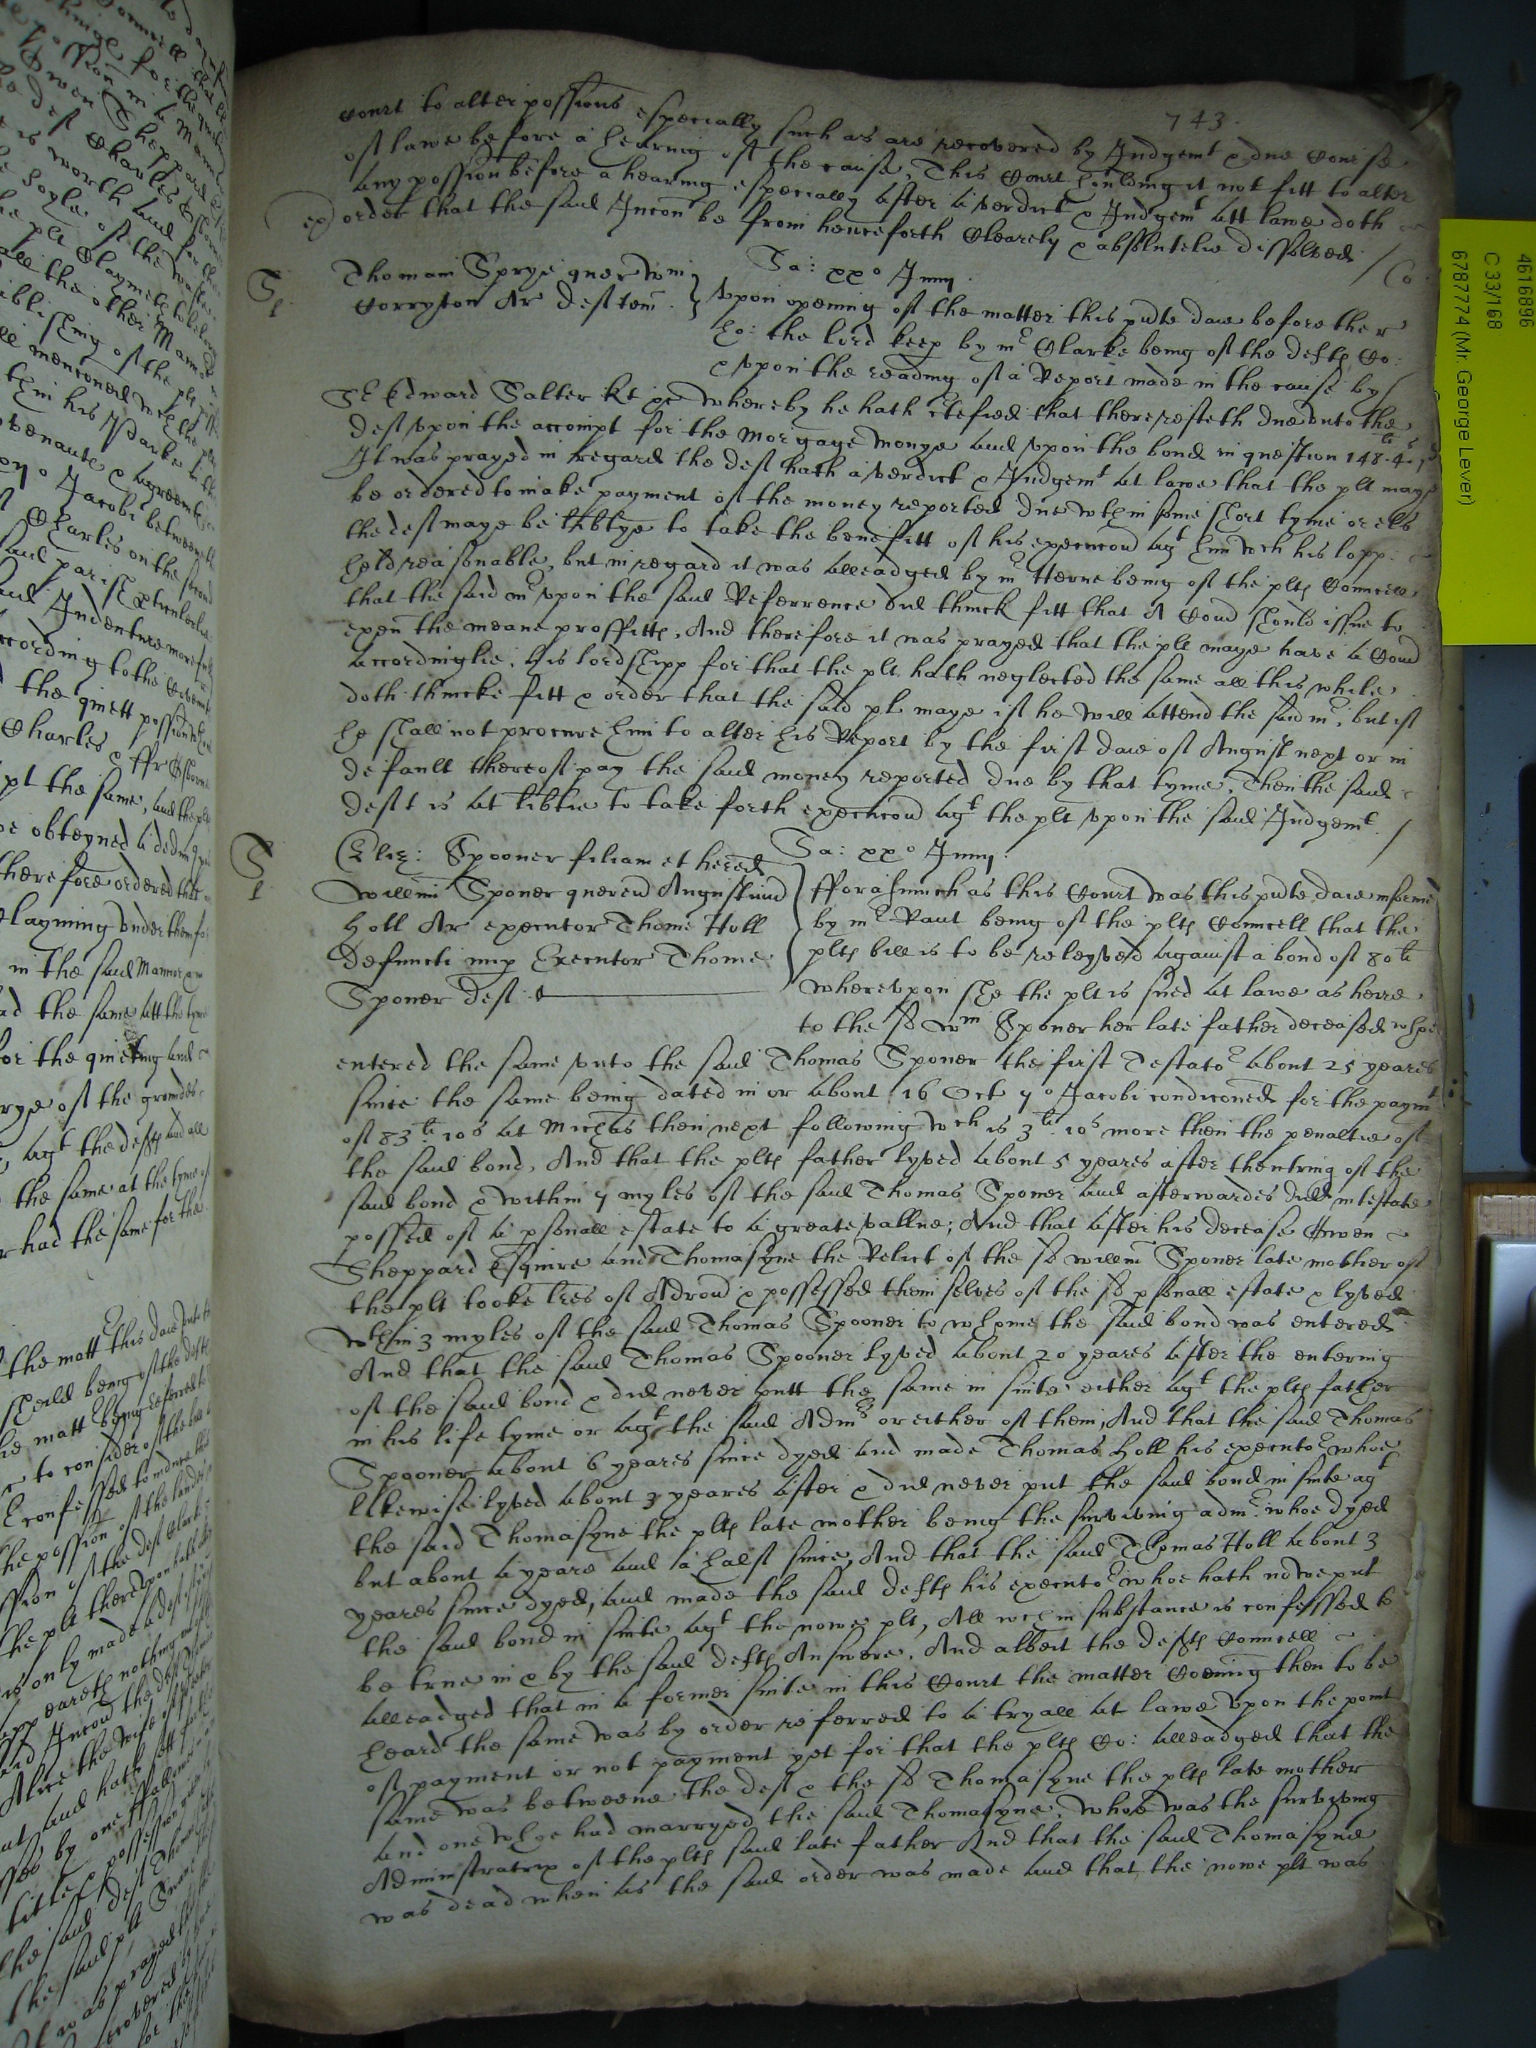 743.
Court to alter possessions especially such as are recovered by Judgemt & due course
of lawe before a hearing of the cause, This Court houlding it not fitt to alter
any possion before a hearing especially after a verdict & Judgemt att lawe doth
order that the said Inion be from henceforth Clearely & absolutelie dissolved / Co
Thomam Sprye quer Wm
Corryton Ar deftem
Sa: xxo Junij
Upon opening of the matter this pnte daie before the r
ho: the lord keep by mr Clarke being of the defts Co:
& upon the reading of a Report made in the cause by
Sr Edward Salter kt &c whereby he hath certefied that there resteth due unto the
deft upon the accompt for the morgage monye and upon the bond in question 148li 4s 1d
It was prayed in regard the deft hath a verdict & Judgemt at lawe that the plt maye
be ordered to make payment of the money reported due wthin some short tyme or els
the deft maye be at libtye to take the benefitt of his execucon agt him wch his lopp
held reasonable, but in regard it was alleadged by mr Herne being of the plts Councell
that the said mr upon the said Referrence did thinck fitt that A Comd should issue to
exen the meane proffitts, And therefore it was prayed that the plt maye have a Comd
accordinglie, his lordshipp for that the plt hath neglected the same all this while
doth thincke fitt & order that the said plt maye if he will attend the said mr, but if
he shall not procure him to alter his Report by the first daie of August next or in
default thereof pay the said money reported due by that tyme, Then the said
deft is at libtie to take forth execucon agt the plt upon the said Judgemt /
Eliz: Spooner filiam et hered
Willmi Sponer queren Augustinu
Holl Ar executor Thome Holl
Defuncti nup Executor Thome
Sponer deft
Sa: xxo Junij
fforasmuch as this Court was this pnte daie informed
by mr Vaut being of the plts Councell that the
plts bill is to be releyved against a bond of 80li
whereupon she the plt is sued at lawe as heire
to the sd Wm Sponer her late father deceased whoe
entered the same unto the said Thomas Sponer the first Testator about 25 yeares
since the same being dated in or about 16 Oct 7o Jacobi condiconed for the paymt
of 83li 10s at Michas then next following wch is 3li 10s more then the penaltie of
the said bond, And that the plts father lyved about 5 yeares after thentring of the
said bond & within 7 myles of the said Thomas Sponer and afterwardes died intestate
possed of a psonall estate to a greate vallue; And that after his decease Owen
Sheppard Esquire and Thomasyne the Relict of the sd Willm Sponer late mother of
the plt tooke lres of Admon & possessed themselves of the sd psonall estate & lyved
wthin 3 myles of the said Thomas Spooner to whome the said bond was entered
And that the said Thomas Spooner lyved about 20 yeares after the entering
of the said bond & did never putt the same in suite either agt the plts father
in his life tyme or agt the said Admrs or either of them, And that the said Thomas
Spooner about 6 yeares since dyed and made Thomas Holl his executor whoe
likewise lyved about 3 yeares after & did never put the said bond in suite agt
the said Thomasyne the plts late mother being the surviving admr whoe dyed
but about a yeare and a halfe since, And that the said Thomas Holl about 3
yeares since dyed, and made the said defts his executor whoe hath nowe put
the said bond in suite agt the nowe plt, All wch in substance is confessed to
be true in & by the said defts Answere, And albeit the defts Councell
alleadged that in a former suite in this Court the matter Coming then to be
heard the same was by order referred to a tryall at lawe upon the point
of payment or not payment yet for that the plts Co: alleadged that the
same was betweene the deft & the sd Thomasyne the plts late mother
and one whoe had marryed the said Thomasyne, whoe was the surviving
Administratrix of the plts said late father And that the said Thomasyne
was dead when as the said order was made and that the nowe plt was
4616896
C 33/168
6787774 (Mr. George Lever)